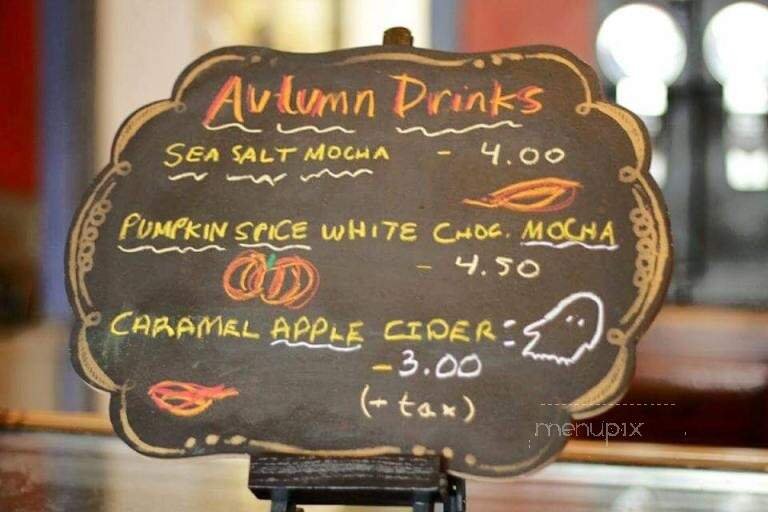 Autumn Drinks
SEA SALT MOCHA - 4.00
PUMPKIN SPICE WHITE CHOC. MOCHA
- 4.50
CARAMEL APPLE CIDER:
- 3.00
(+ tax)
menupix